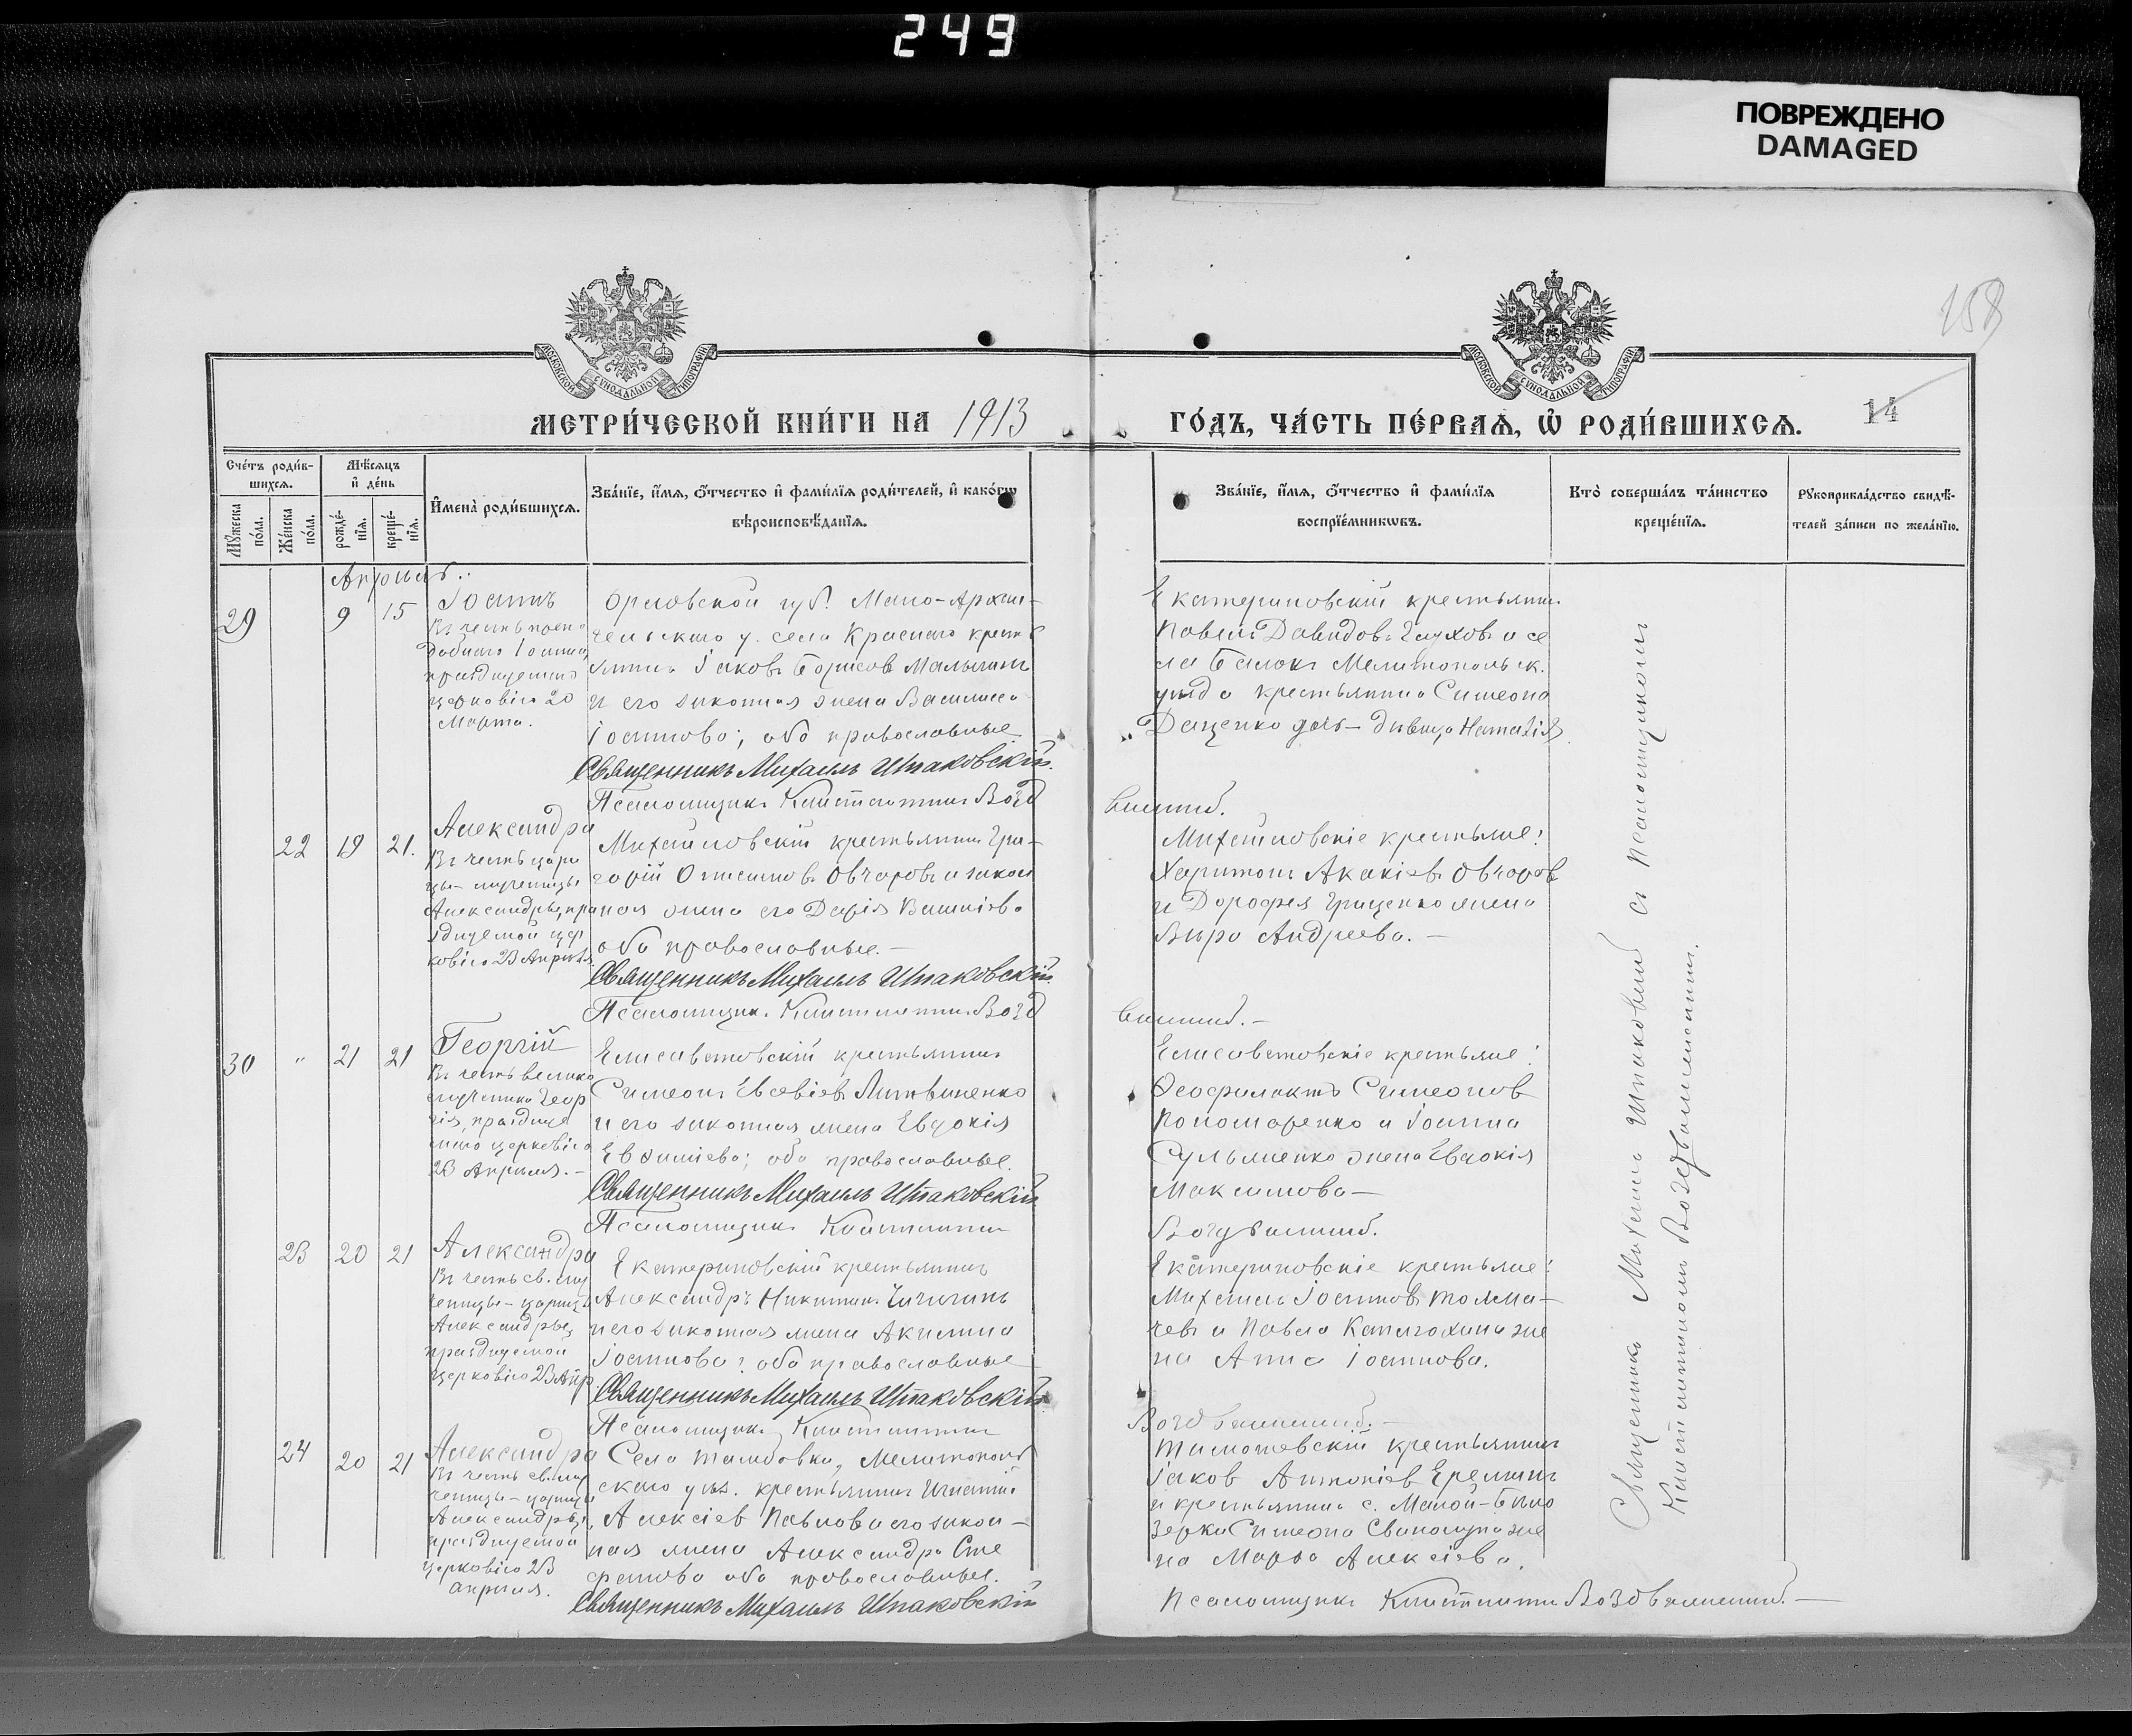 249
ПОВРЕЖДЕНО
DAMAGED
158
МОСКОВСКОЙ СѴНОДАЛЬНОЙ ТИПОГРАФІИ
МОСКОВСКОЙ СѴНОДАЛЬНОЙ ТИПОГРАФІИ
МЕТРИ́ЧЕСКОЙ КНИ́ГИ НА 1913
ГО́ДЪ, ЧА́СТЬ ПЕ́РВАѦ, Ѡ҆ РОДИ́ВШИХСѦ.
14
Сче́тъ роди́в-
шихсѧ.
Мѣ́сѧцъ
и҆ де́нь
Мꙋ́жеска
по́ла.
Же́нска
по́ла.
рожде́-
нїѧ.
креще́-
нїѧ.
И҆мена̀ роди́вшихсѧ.
Зва́нїе, и҆́мѧ, ѻ҆́тчество и҆ фами́лїѧ роди́телей, и҆ како́гѡ
вѣроисповѣ́данїѧ.
Зва́нїе, и҆́мѧ, ѻ҆́тчество и҆ фами́лїѧ
воспрїе́мникѡвъ.
Кто̀ соверша́лъ та́инство
креще́нїѧ.
Рꙋкоприкла́дство свидѣ́-
телей за́писи по жела́нїю.
Апрѣль.
29
9
15
Іоаннъ
Въ честь препо
добнаго Іоанна,
празднуемаго
церковію 20
Марта.
Орловской губ. Мало-Архан-
гельскаго у. села Краснаго кресть
янинъ Іаковъ Борисов Малыгинъ
и его законная жена Василисса
Іоаннова; оба православные
Священникъ Михаилъ Шпаковскій.
Псаломщикъ Константинъ Возд
виженск.
Екатериновскій крестьянин
Павелъ Давидовъ Глуховъ и се
ла Балокъ Мелитопольск.
уѣзда крестьянина Симеона
Даценко дочь - дѣвица Наталія
22
19
21.
Александра
Въ честь цари
цы-мученицы
Александры, пра
зднуемой цер
ковію 23 Апрѣля.
Михайловскій крестьянинъ Гри-
горій Онисимовъ Овчаровъ и закон
ная жена его Дарія
оба православные.-
Священникъ Михаилъ Шпаковскій.
Псаломщикъ Константинъ Возд
виженск.-
Михайловскіе крестьяне:
Харитонъ Акакіевъ Овчаров
и Дорофея Гриценко жена
Вѣра Андреева.-
30
"
21
21
Георгій
Въ честь велико
мученика Геор
гія, праздну
емаго церковію
23 Апрѣля.-
Елисаветовскій крестьянинъ
Симеонъ Евсевіевъ Литвиненко
и его законная жена Евдокія
Евфиміева; оба православные.
Священникъ Михаилъ Шпаковскій
Псаломщикъ Константинъ
Воздвиженск.
Елисаветовскіе крестьяне:
Ѳеофилактъ Симеонов
Пономаренко и Іоанна
жена Евдокія
Максимова-
23
20
21
Александра
Въ честь св. му
ченицы-царицы
Александры,
празднуемой
церковію 23 Апр
Екатериновскій крестьянинъ
Александръ Никитинъ Чичигинъ
и его законная жена Акилина
Іоаннова; оба православные
Священникъ Михаилъ Шпаковскій
Псаломщикъ Константинъ
Воздвиженск.-
Екатериновскіе крестьяне:
Михаилъ Іоанновъ Толма-
чевъ и Павла же
на Анна Іоаннова.
24
20
21
Александра
Въ честь св. му
ченицы-царицы
Александры,
празднуемой
церковію 23
апрѣля.
Села Тамбовки, Мелитополь
скаго уѣз. крестьянинъ Игнатій
Алексіев Павлов и его закон-
ная жена Александра Сте
фанова оба православные.
Священникъ Михаилъ Шпаковскій
Псаломщикъ Константинъ Воздвиженск.-
Тимошевскій крестьянинъ
Іаков Антоніев Ереминъ
и крестьянина с. Малой-Бѣло
зерки Симеона же
на Марѳа Алексіева.
Священникъ Михаилъ Шпаковскій съ псаломщикомъ
Константиномъ Воздвиженскимъ.